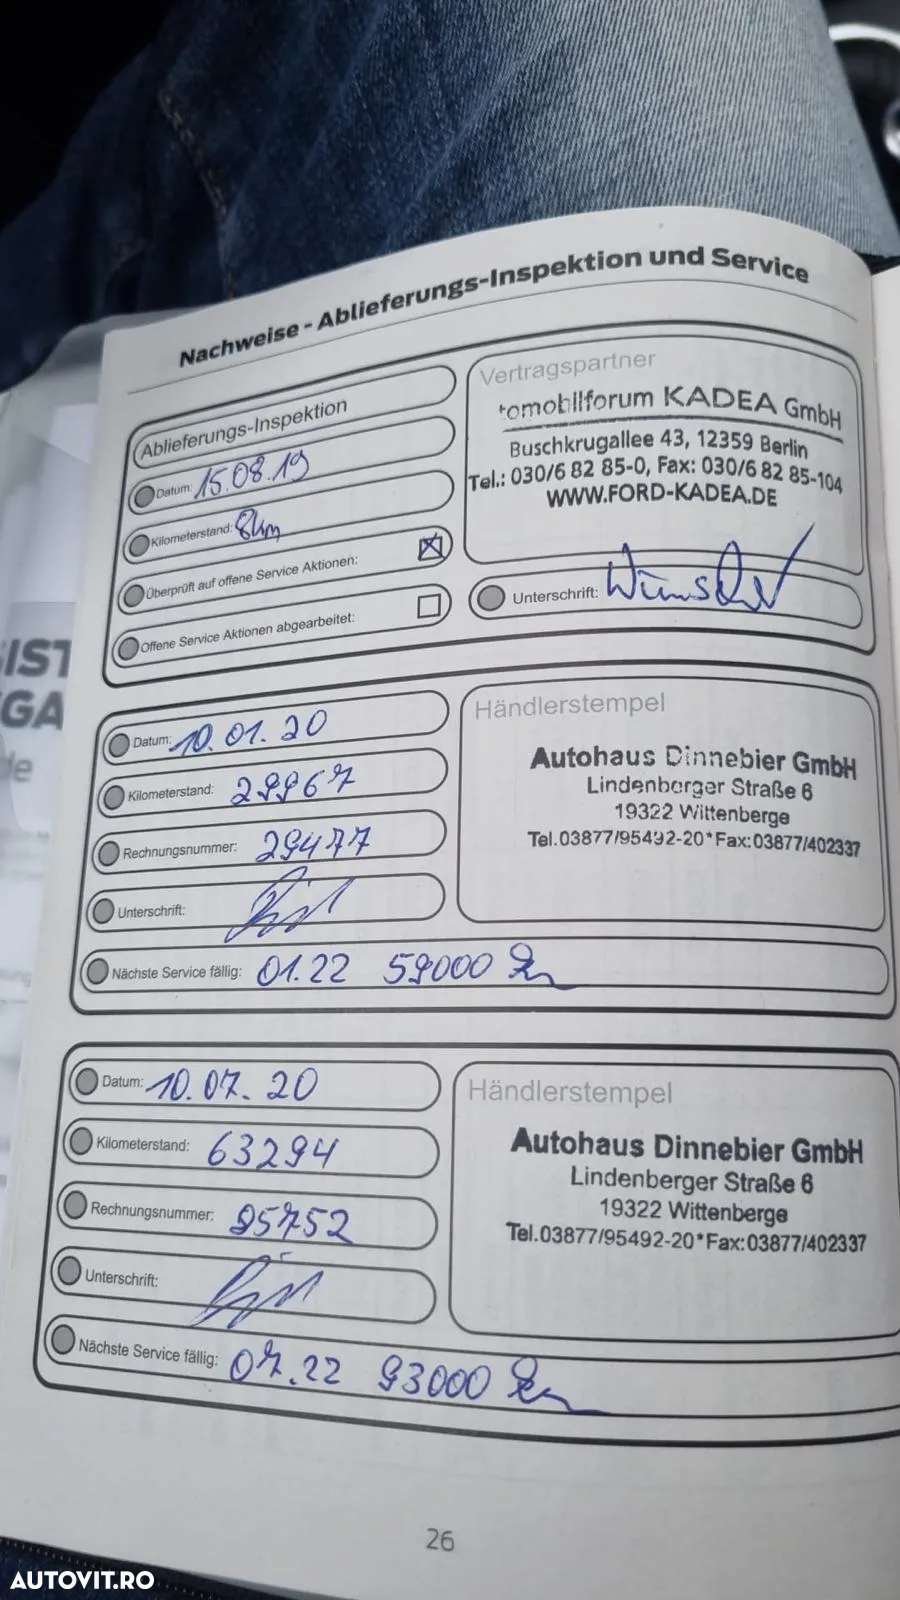 Nachweise - Ablieferungs-Inspektion und Service
Ablieferungs-Inspektion
Datum: 15.08.19
Kilometerstand: 8km
Überprüft auf offene Service Aktionen:
Offene Service Aktionen abgearbeitet:
Vertragspartner
tomobilforum KADEA GmbH
Buschkrugallee 43, 12359 Berlin
Tel.: 030/6 82 85-0, Fax: 030/6 82 85-104
WWW.FORD-KADEA.DE
Unterschrift:
Datum: 10.01.20
Kilometerstand: 29967
Rechnungsnummer: 29477
Unterschrift:
Nächste Service fällig: 01.22 59000 km
Händlerstempel
Autohaus Dinnebier GmbH
Lindenberger Straße 6
19322 Wittenberge
Tel.03877/95492-20*Fax:03877/402337
Datum: 10.07.20
Kilometerstand: 63294
Rechnungsnummer: 95752
Unterschrift:
Nächste Service fällig: 07.22 93000 km
Händlerstempel
Autohaus Dinnebier GmbH
Lindenberger Straße 6
19322 Wittenberge
Tel.03877/95492-20*Fax:03877/402337
26
IST
GA
de
AUTOVIT.RO